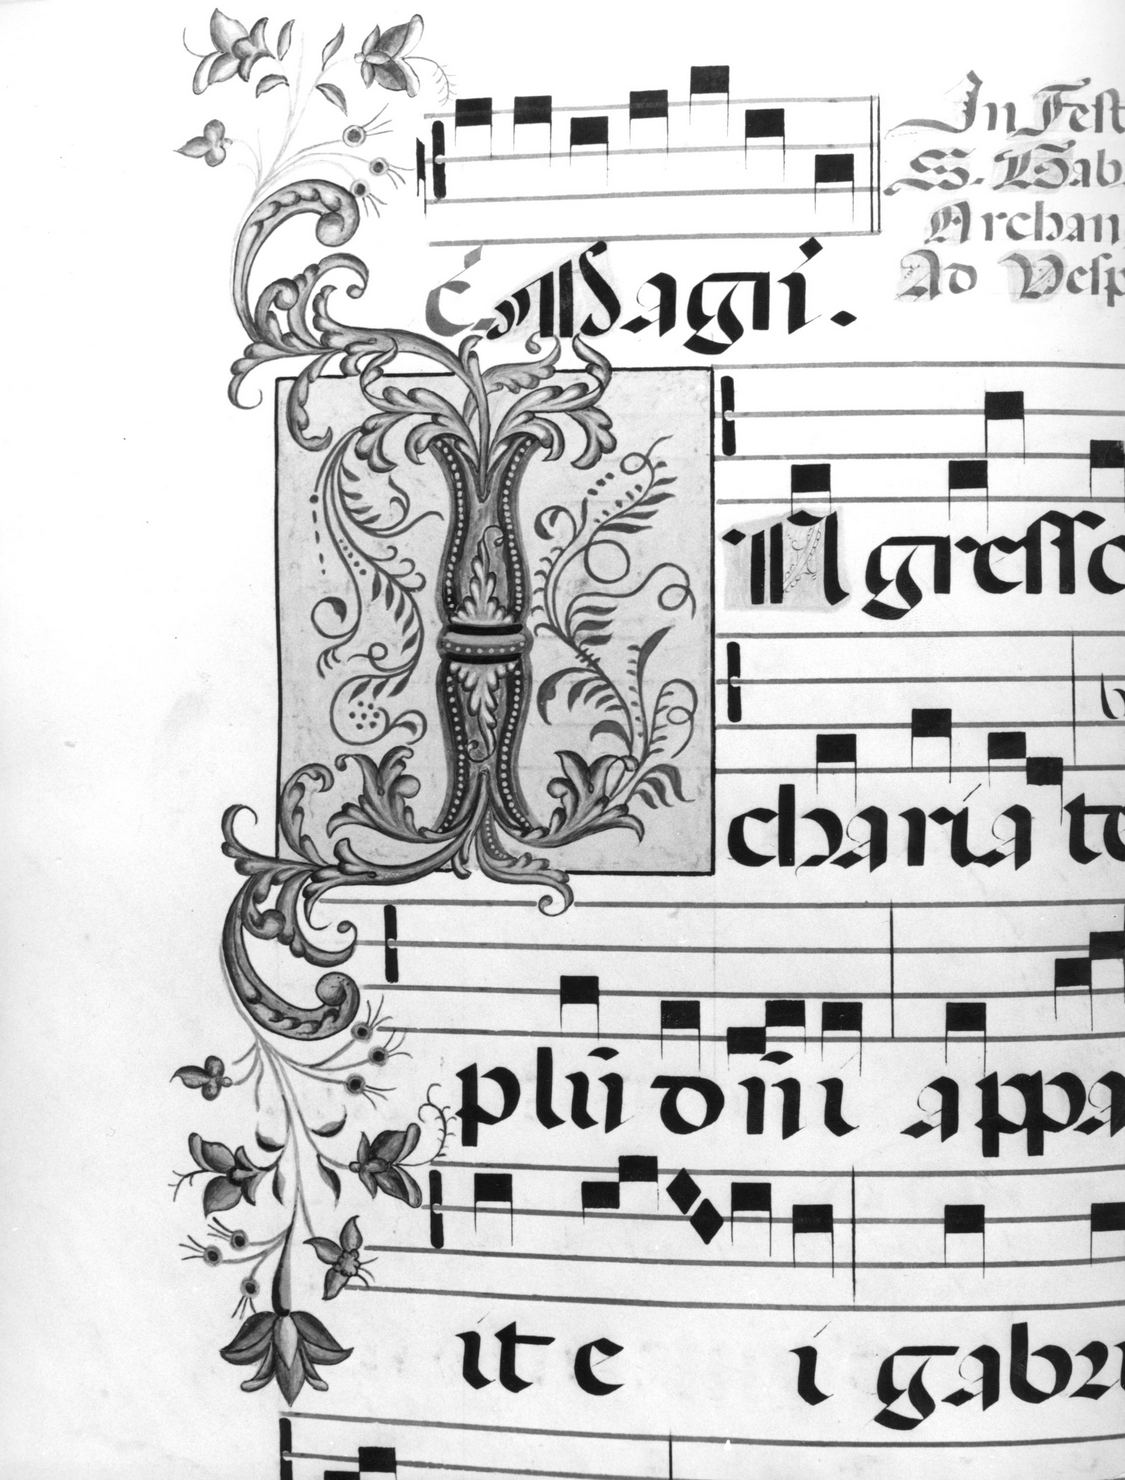 In Fest
S. Gab
Archan
Ad Vesp
c. Magn.
INgresso
charia te
plū dn̄i appa
it e i gabri